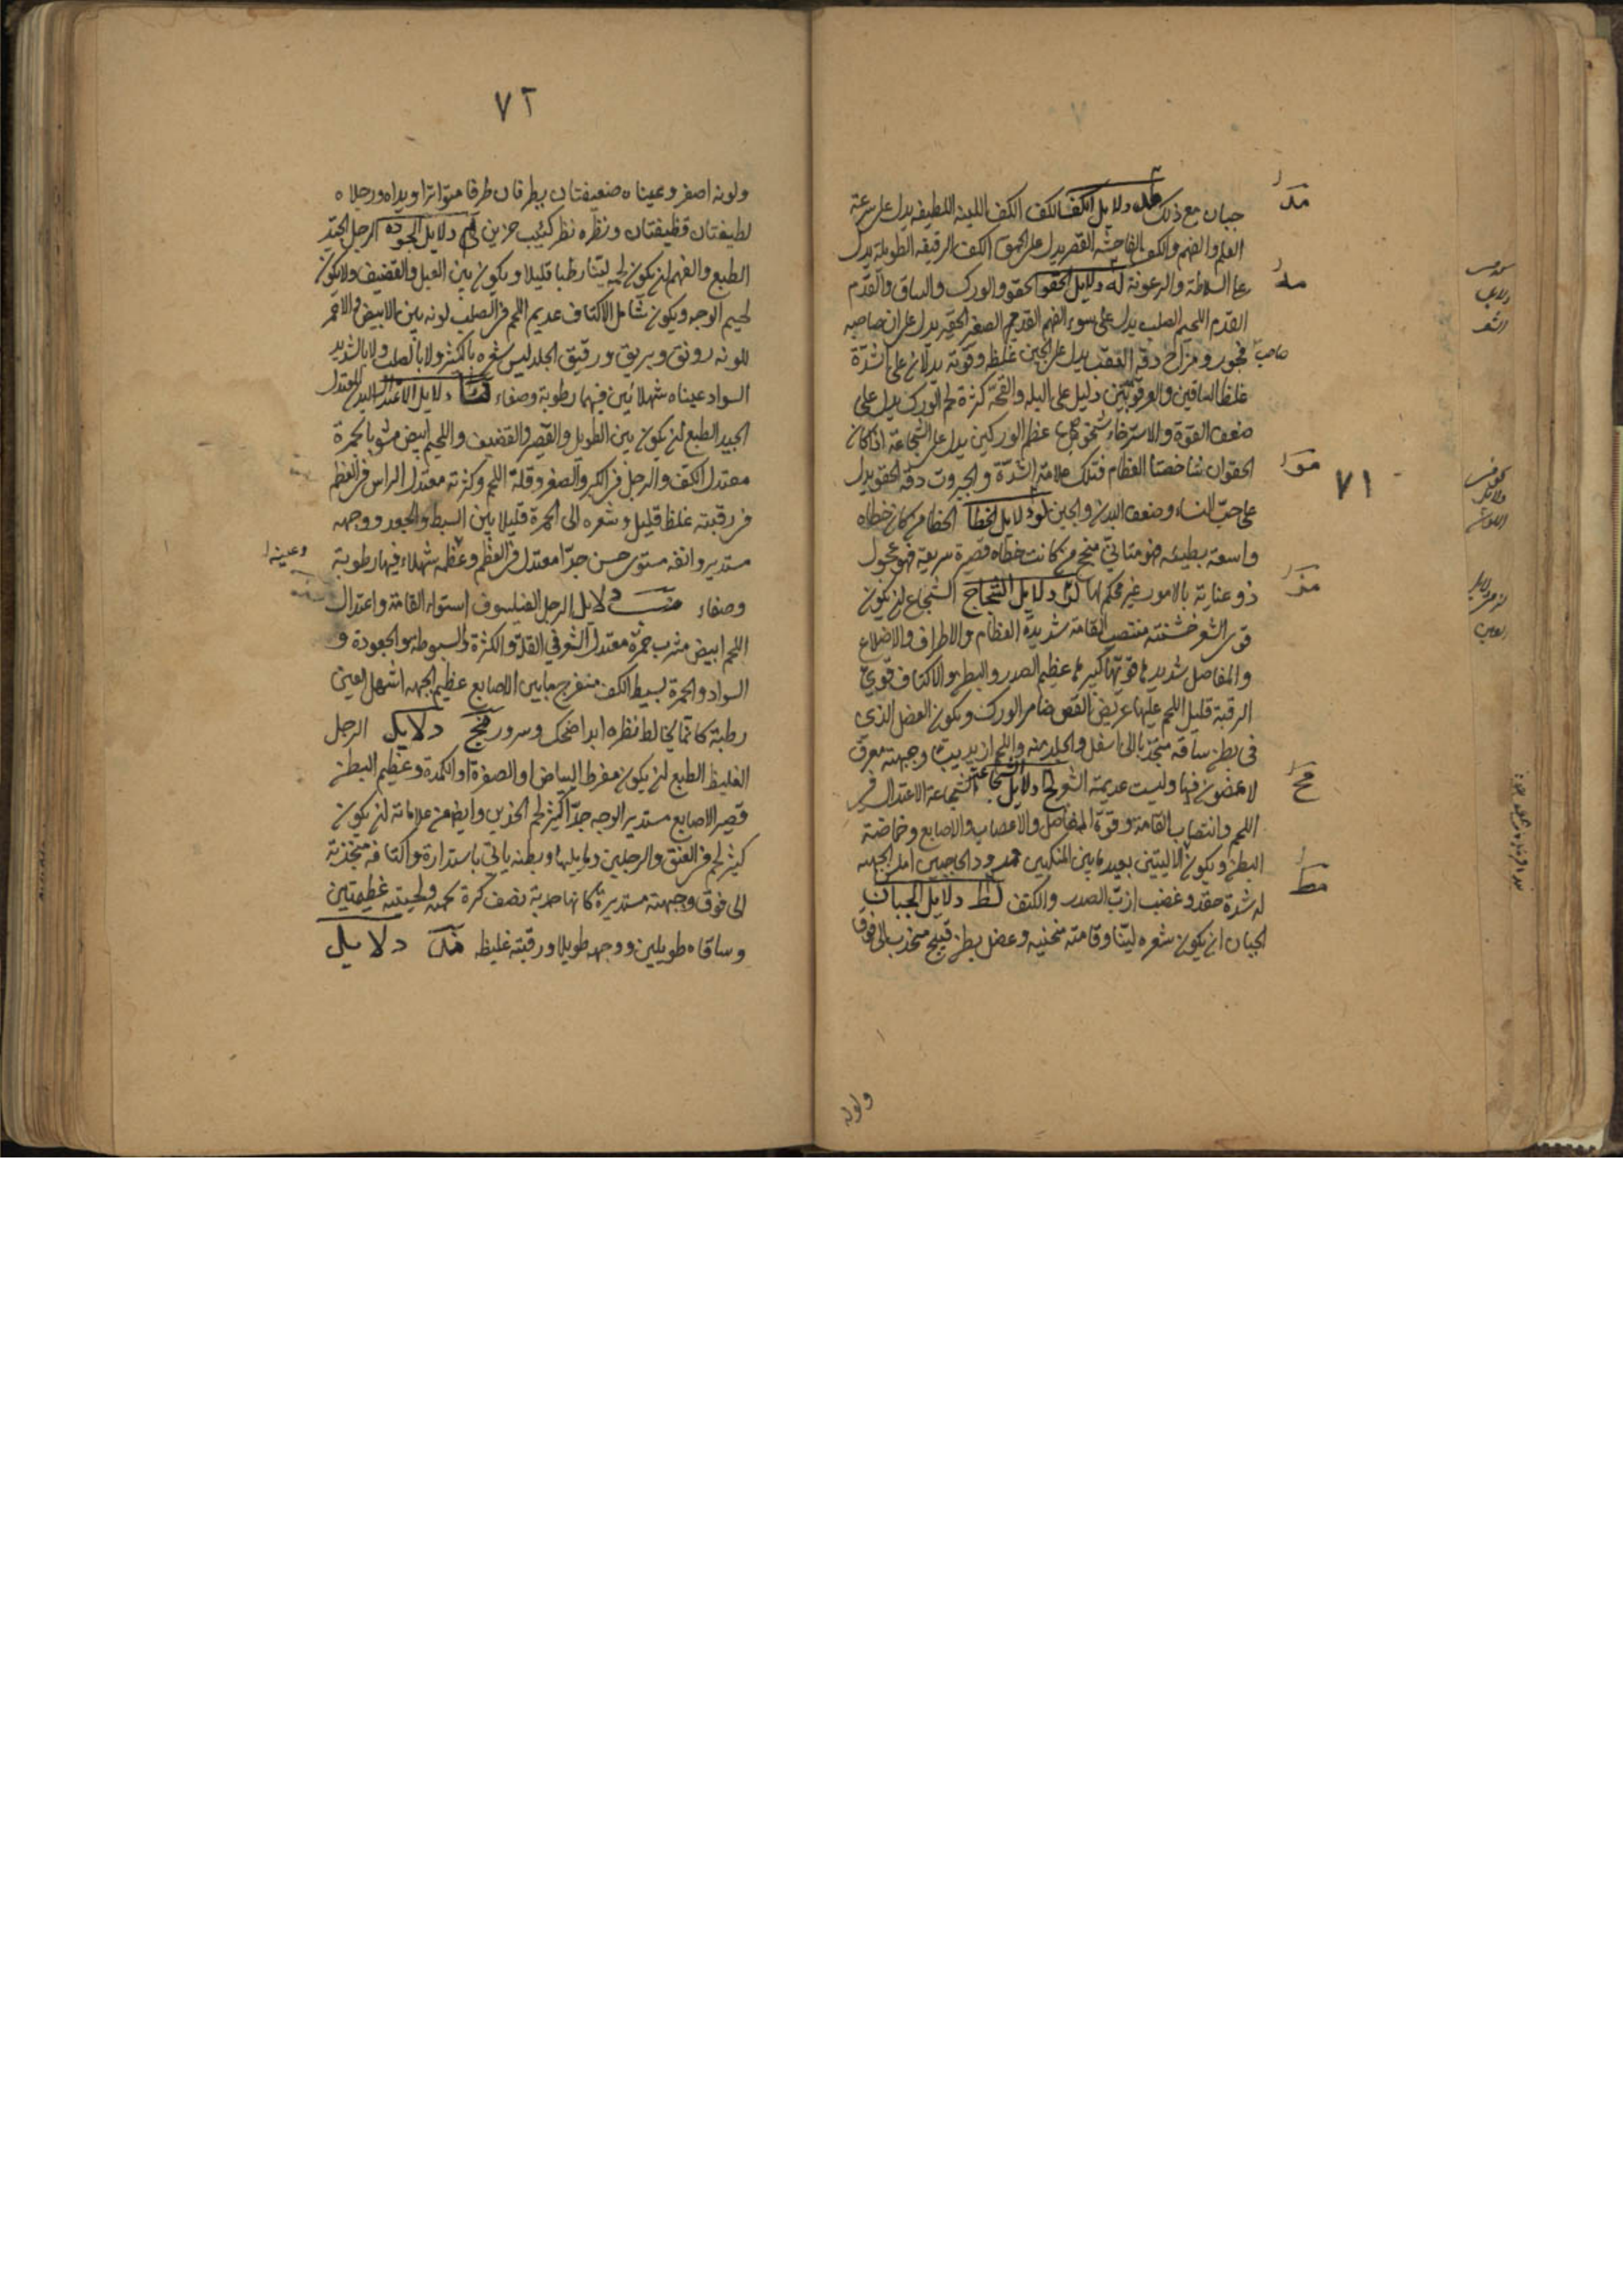 جبان مع ذلك دلايل الكف الكف اللينه اللطيفه يدل على سرعة
العلم والفهم والكف الفاحشه القصر يدل على الحمق الكف الرقيقه الطويلة يدل
على السلاطة والرعونة له دلايل الحقو الحقو والورك والساق والقدم
القدم اللحيم الصلب يدل على سوء الفهم القدم الصغير يدل على ان صاحبه
صاحب فجور ومزاح دقة العقب يدل على الجبن غلظه وقوته يدلان على الشدة
غلظ الساقين والعرقوبين دليل على البله والقحة كثرة لحم الورك يدل على
ضعف القوة والاسترخاء عظم الوركين يدل على الشجاعة اذا كان
الحقوان شاخصتا العظام فتلك علامة الشدة والجبروت دقة الحقو يدل
على حب النساء وضعف البدن والجبن دلايل الخطا الخطا من كان خطاه
واسعة بطيئه فهو متاني منجح من كانت خطاه قصيرة سريعة فهو عجول
ذو عناية بالامور غير محكم لها دلايل الشجاع الشجاع ان يكون
قوى الشعر خشنته منتصب القامة شديدة العظام والاطراف والاضلاع
والمفاصل شديد عظيم الصدر والبطن والاكتاف قوى
الرقبة قليل اللحم عليها عريض القص ضامر الورك ويكون العضل الذى
فى بطن ساقه منجذبا الى اسفل والجلد
لا غضون فيها وليست عديمة الشعر دلايل الشجاعة الاعتدال فى
اللحم وانتصاب القامة وقوة المفاصل والاعصاب والاصابع وخماصة
البطن ويكون الاليتين بعيد ما بين المنكبين ممدود الحاجبين املس الجبهه
له شدة حقد وغضب ازب الصدر والكتف مط دلايل الجبان
الجبان ان يكون شعره لينا وقامته منحنيه وعضل بطن منجذب الى فوق
مد
مه
مو
مز
مح
مط
٧١
ولونه
٧٢
ولونه اصفر وعيناه ضعيفتان يطرفان طرفا متواترا ويداه ورجلاه
لطيفتان قظيفتان ونظره نظر كئيب حزين دلايل الجودة الرجل الجيد
الطبع والفهم ان يكون لحمه لينا رطبا قليلا ويكون بين العبل والقضيف ولا يكون
لحيم الوجه ويكون شامل الاكتاف عديم اللحم فى الصلب لونه بين الابيض والاحمر
للونه رونق وبريق ورقيق الجلد ليس شعره بالكثير ولا بالصلب ولا بالشديد
السواد عيناه شهلائين فيهما رطوبة وصفاء نا دلايل الاعتدال المعتدل
الجيد الطبع ان يكون بين الطويل والقصير والقضيف واللحيم ابيض مشوبا بحمرة
معتدل الكف والرجل فى الكبر والصغر وقلة اللحم وكثرته معتدل الراس فى العظم
فى رقبته غلظ قليل وشعره الى الحمرة قليلا بين السبط والجعد ووجهه
مستدير وانفه مستوى حسن جدا معتدل فى العظم شهلاء فيها رطوبة
وعيناه
وصفاء نب دلايل الرجل الفيلسوف استواء القامة واعتدال
اللحم ابيض مشرب حمرة معتدل الشعر فى القلة والكثرة والسبوطه والجعودة و
السواد والحمرة بسيط الكف منفرج ما بين الاصابع عظيم الجبهه اشهل العين
رطبة كانما يخالط نظره ابدا ضحك وسرور نج دلايل الرجل
الغليظ الطبع ان يكون مفرط البياض او الصفرة او الكمدة وعظيم البطن
قصير الاصابع مستدير الوجه جدا كثير لحم الخدين وايضا من علاماته ان يكون
كثير لحم فى العنق والرجلين وما يليها وبطنه باستدارة واكتافه منجذبة
الى فوق وجبهته مستديرة كانها حدبة نصف كرة ولحيتيه عظيمتين
وساقاه طويلين ووجهه طويلا ورقبته غليظه ند دلايل